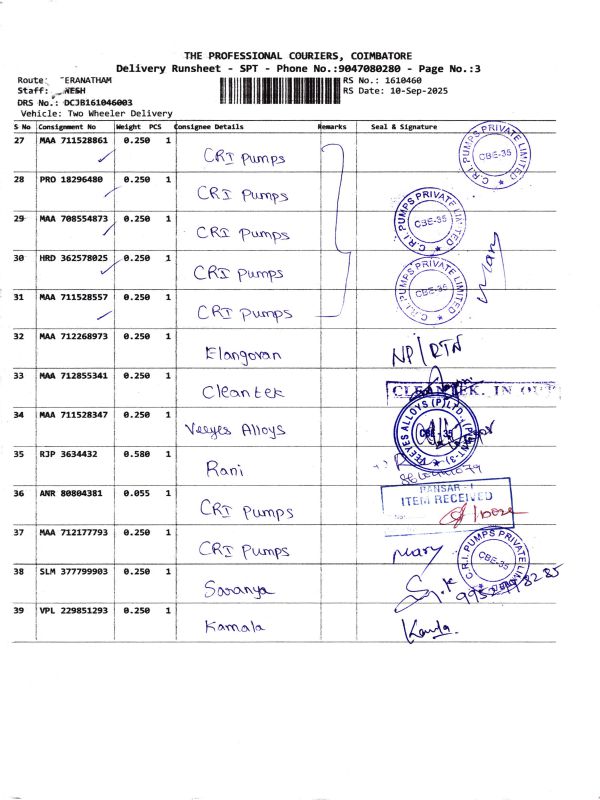 THE PROFESSIONAL COURIERS, COIMBATORE
Delivery Runsheet - SPT - Phone No.:9047080280 - Page No.:3
Route: ERANATHAM RS No.: 1610460
Staff: NESH RS Date: 10-Sep-2025
DRS No.: DCJB161046003
Vehicle: Two Wheeler Delivery
S No Consignment No Weight PCS Consignee Details Remarks Seal & Signature
27 MAA 711528861 0.250 1 CRI Pumps C.R.I. PUMPS PRIVATE LIMITED CBE-35
28 PRO 18296480 0.250 1 CRI Pumps C.R.I. PUMPS PRIVATE LIMITED CBE-35
29 MAA 708554873 0.250 1 CRI Pumps
30 HRD 362578025 0.250 1 CRI Pumps C.R.I. PUMPS PRIVATE LIMITED CBE-35 Mary
31 MAA 711528557 0.250 1 CRI Pumps
32 MAA 712268973 0.250 1 Elangovan NP/RTN
33 MAA 712855341 0.250 1 Cleantek CLEANTEK. IN OUT
34 MAA 711528347 0.250 1 Veeyes Alloys VEEYES ALLOYS (P) LTD. (PLANT-3) CBE-35
35 RJP 3634432 0.580 1 Rani
36 ANR 80804381 0.055 1 CRI Pumps RANSAR - I ITEM RECEIVED
37 MAA 712177793 0.250 1 CRI Pumps Mary C.R.I. PUMPS PRIVATE LIMITED CBE-35
38 SLM 377799903 0.250 1 Saranya
39 VPL 229851293 0.250 1 Kamala Kamla.